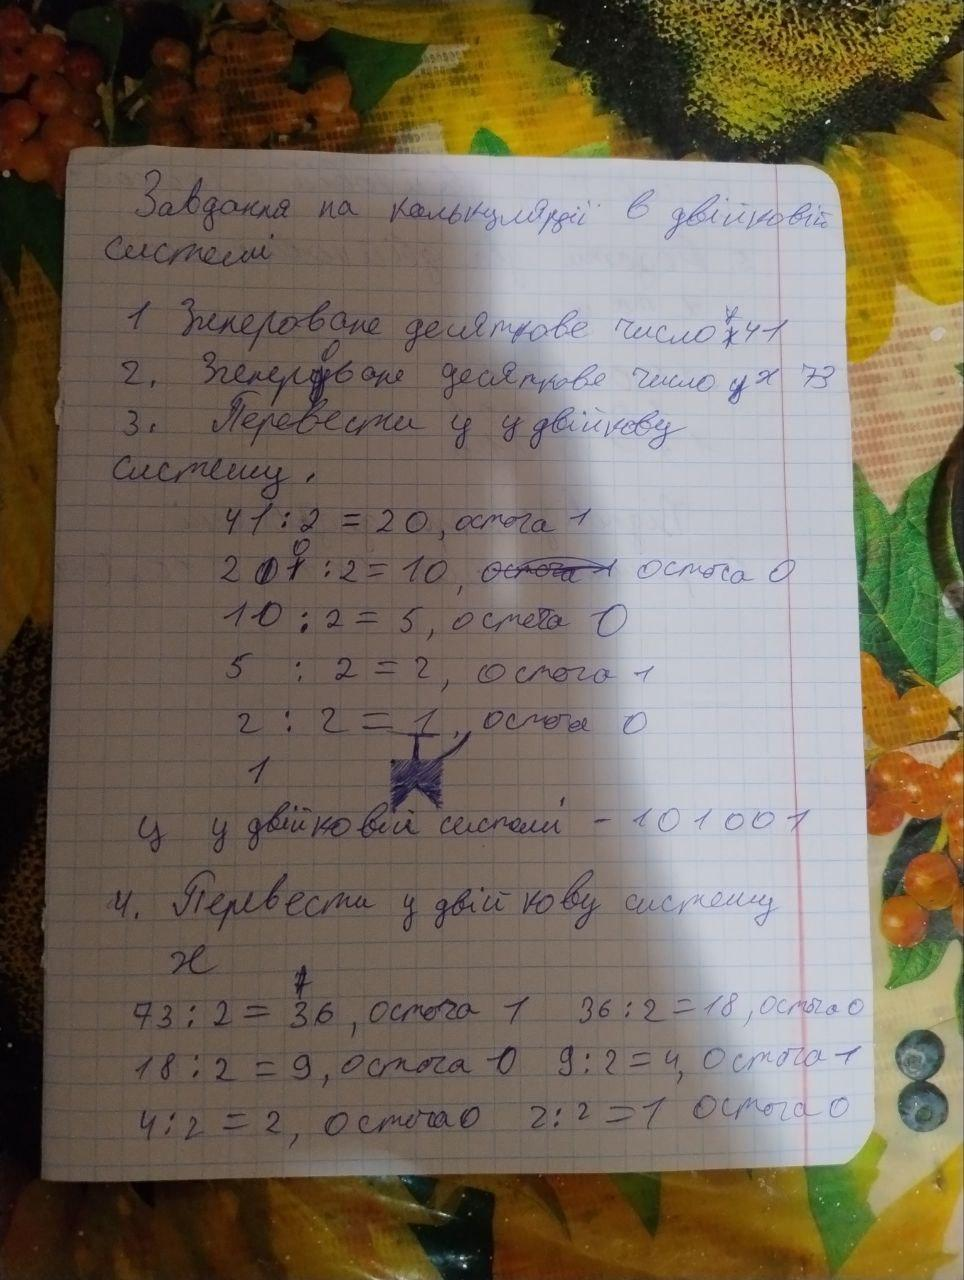 Завдання на калькуляції в двійковій
системі
1 Згенероване десяткове число 41
2. Згенероване десяткове число x 73
3. Перевести у у двійкову
систему.
41 : 2 = 20, остача 1
20 : 2 = 10, остача 0
10 : 2 = 5, остача 0
5 : 2 = 2, остача 1
2 : 2 = 1, остача 0
1
у у двійковій системі - 101001
4. Перевести у двійкову систему
x
73 : 2 = 36, остача 1 36 : 2 = 18, остача 0
18 : 2 = 9, остача 0 9 : 2 = 4, остача 1
4 : 2 = 2, остача 0 2 : 2 = 1 остача 0